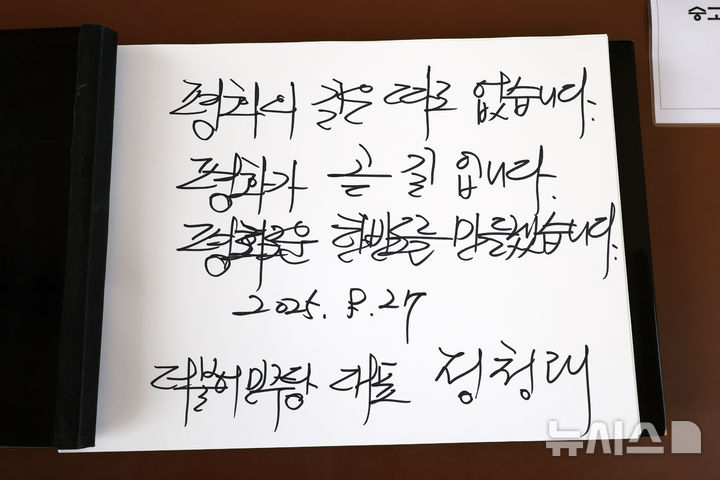 숭고
평화의 길은 따로 없습니다.
평화가 곧 길입니다.
평화로운 한반도를 만들겠습니다.
2025. 8. 27
더불어민주당 대표 정청래
뉴시스